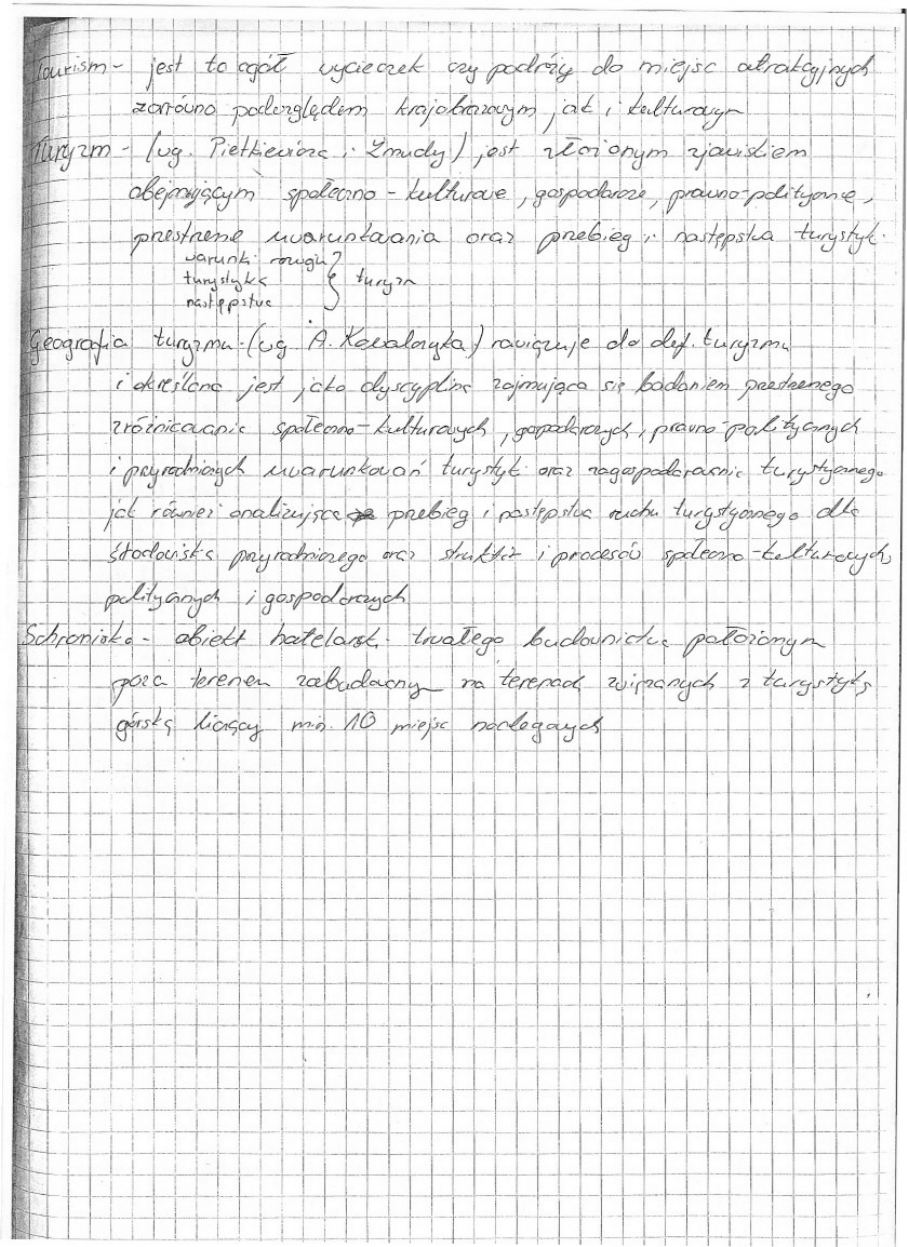 Tourism - jest to ogół wycieczek czy podróży do miejsc atrakcyjnych
zarówno podwzględem krajobrazowym jak i kulturowym
Turyzm - (wg. Pietkiewicza i Żmudy) jest złożonym zjawiskiem
obejmującym społeczno-kulturowe, gospodarcze, prawno-polityczne,
przestrzenne uwarunkowania oraz przebieg i następstwa turystyki.
warunki
turystyka } turyzm
następstwa
Geografia turyzmu - (wg A. Kowalczyka) nawiązuje do def. turyzmu
i określana jest jako dyscyplina zajmująca się badaniem przestrzennego
zróżnicowania społeczno-kulturowych, gospodarczych, prawno-politycznych
i przyrodniczych uwarunkowań turystyki oraz zagospodarowania turystycznego
jak również analizująca przebieg i następstwa ruchu turystycznego dla
środowiska przyrodniczego oraz struktur i procesów społeczno-kulturowych,
politycznych i gospodarczych
Schronisko - obiekt hotelarski trwałego budownictwa położonym
poza terenem zabudowanym na terenach związanych z turystyką
górską liczący min. 10 miejsc noclegowych